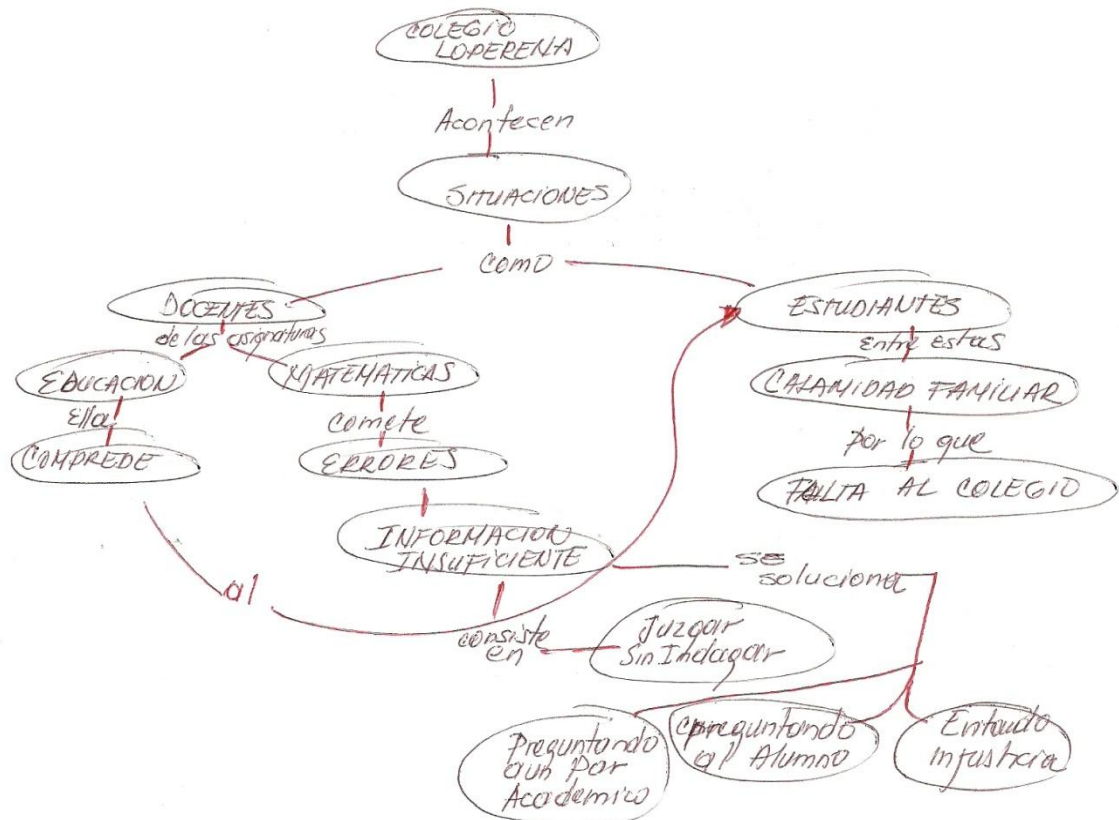 COLEGIO
LOPERENA
Acontecen
SITUACIONES
como
DOCENTES
de las asignaturas
EDUCACION
Ella
COMPREDE
MATEMATICAS
comete
ERRORES
INFORMACION
INSUFICIENTE
al
consiste
en
Juzgar
Sin Indagar
ESTUDIANTES
Entre estas
CALAMIDAD FAMILIAR
por lo que
FALTA AL COLEGIO
se
soluciona
Preguntando
a un Par
Academico
preguntando
al Alumno
injusticia